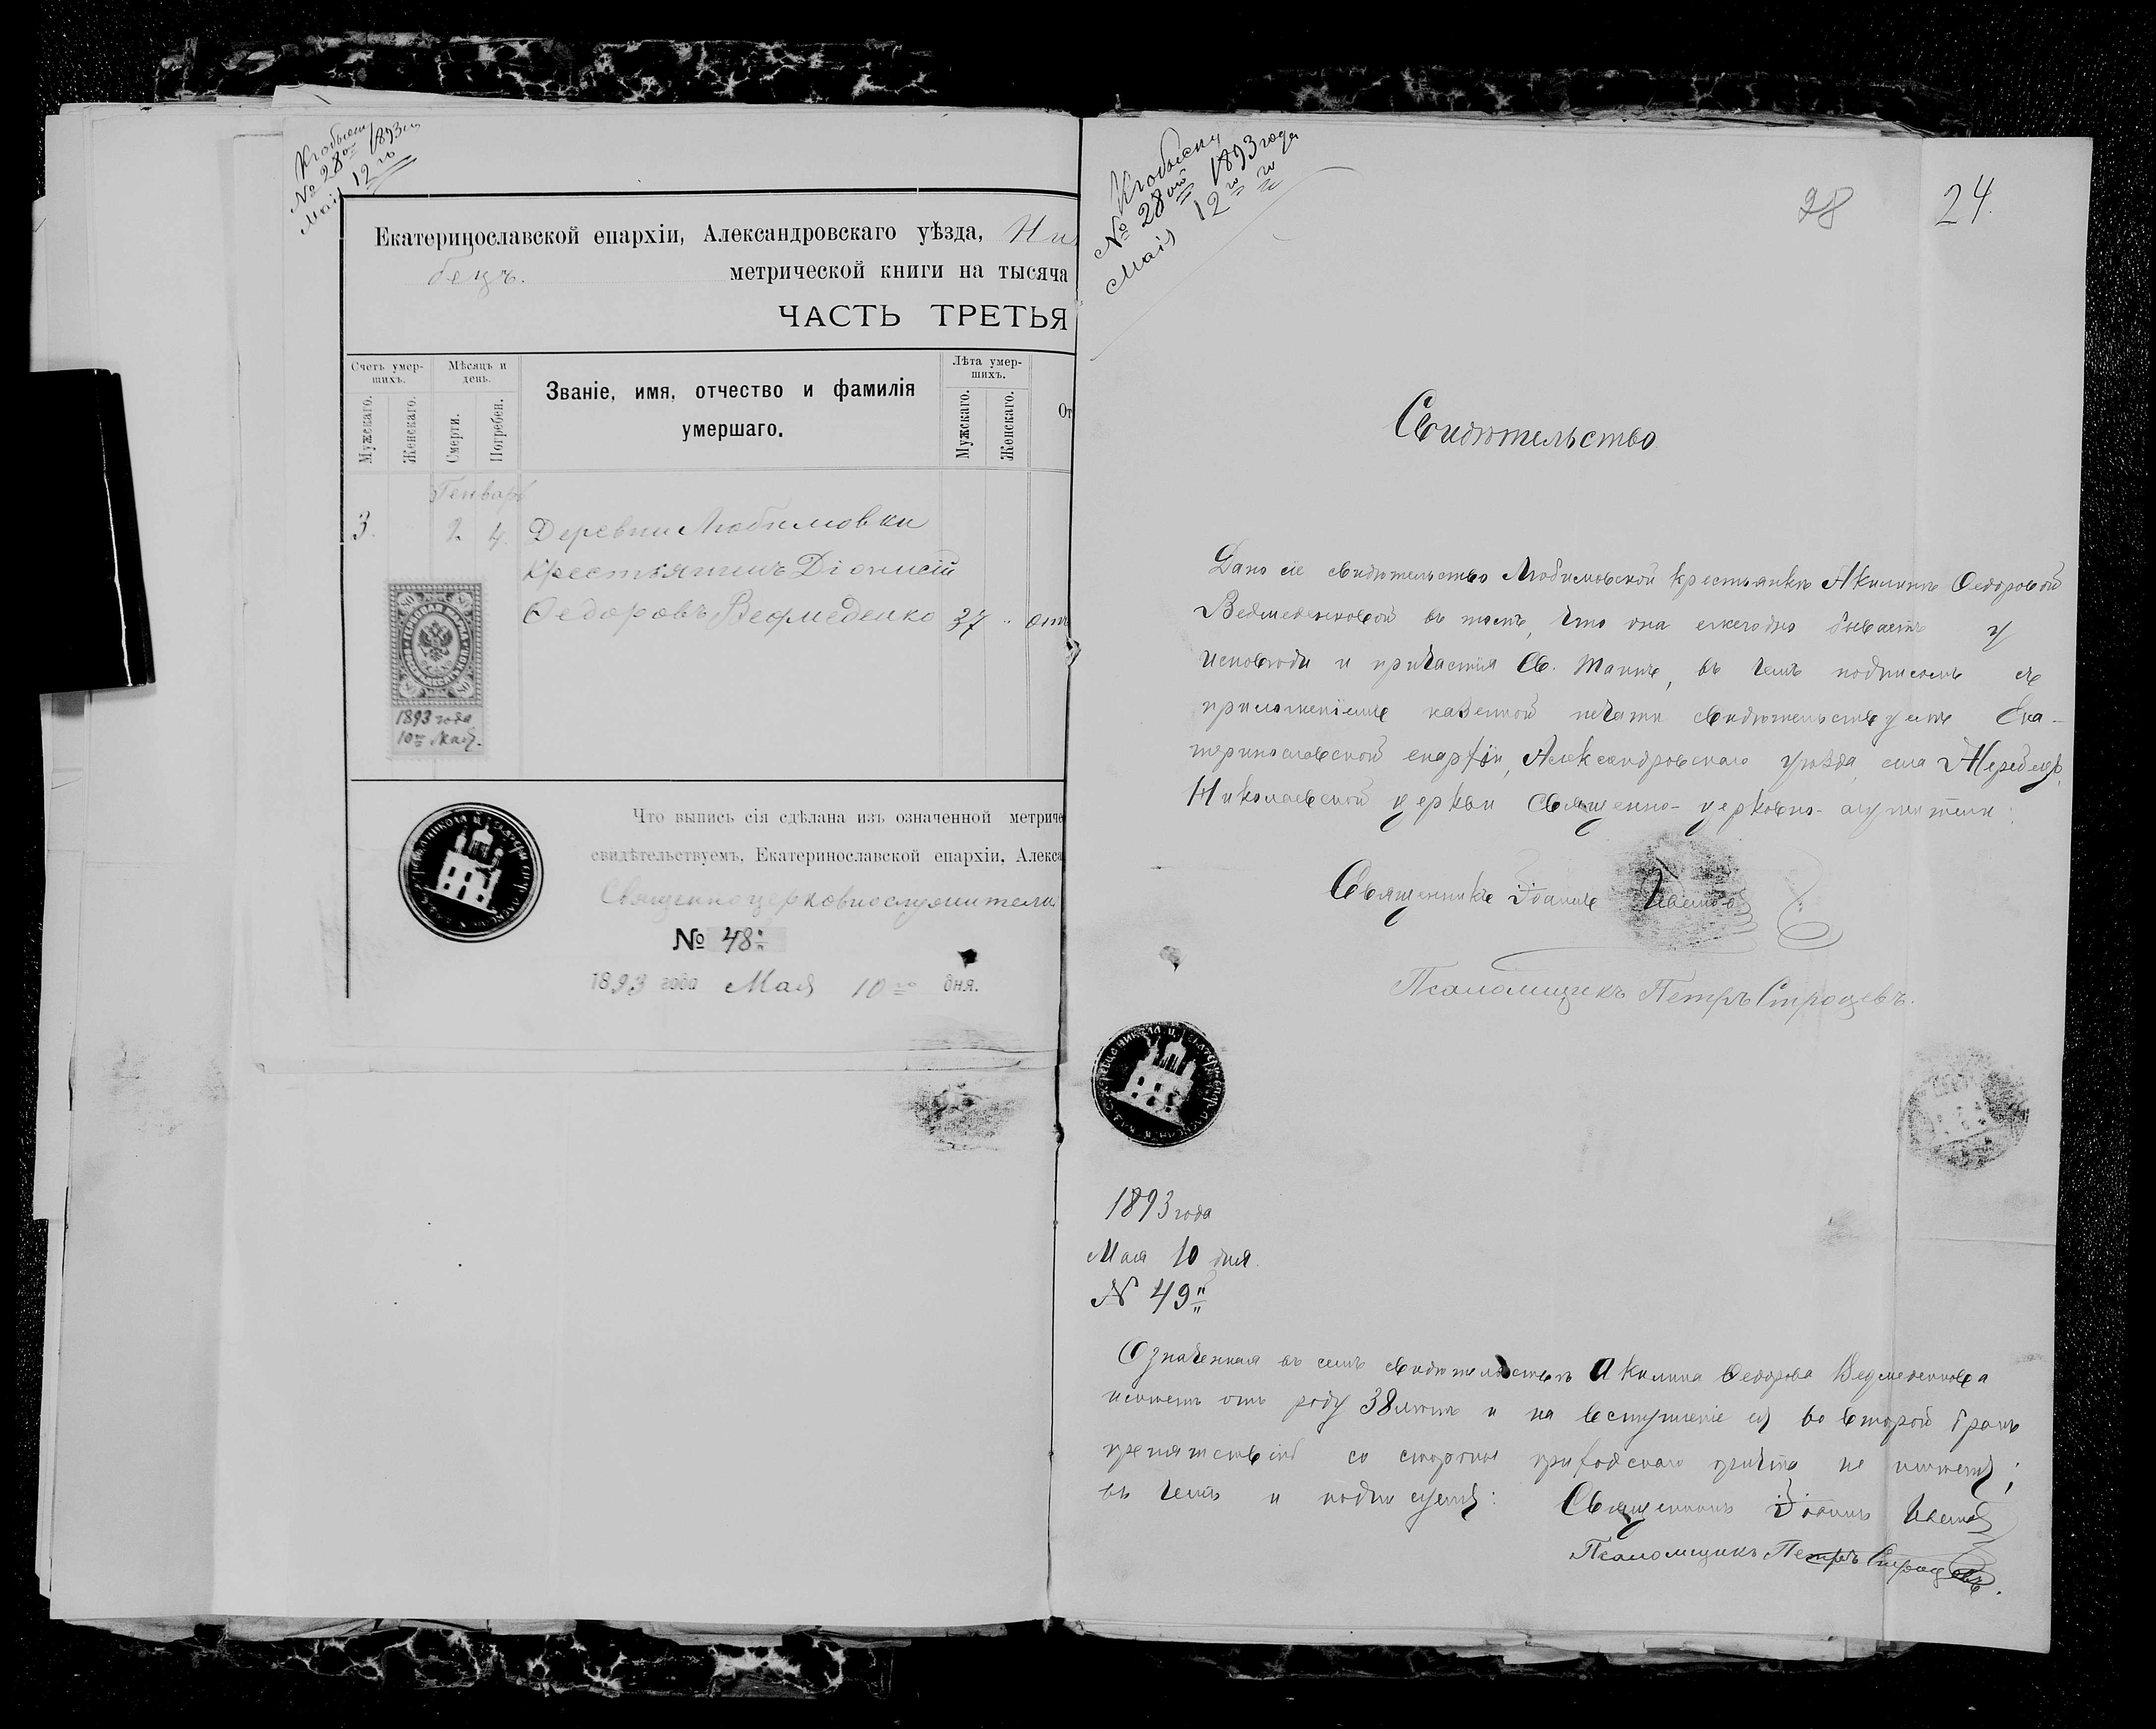 К обыску
№ 28ой 1893 го
Мая 12го
Екатеринославской епархіи, Александровскаго уѣзда, Ни
бецъ.
метрической книги на тысяча
ЧАСТЬ ТРЕТЬЯ
Счетъ умер-
шихъ.
Мѣсяцъ и
день.
Званіе, имя, отчество и фамилія
умершаго.
Лѣта умер-
шихъ.
Мужскаго.
Женскаго.
Смерти.
Погребен.
Мужскаго.
Женскаго.
От
Генварь
3. 2 4. Деревни Любимовки
крестьянинъ Діонисій
Ѳедоровъ Ведмеденко 37 " отъ
1893 года
10го Мая.
Что выпись сія сдѣлана изъ означенной метриче
свидѣтельствуемъ, Екатеринославской епархіи, Алекса
Священноцерковнослужители
№ 48й
1893 года Мая 10го дня.
К обыску
№ 28ой 1893 года
Мая 12го
28
24.
Свидѣтельство
Дано сіе свидѣтельство Любимовской крестьянкѣ Акилинѣ Ѳедоровой
Ведмеденковой въ томъ, что она ежегодно бываетъ у
исповѣди и причастія Св. Таинъ, въ чемъ подписомъ съ
приложеніемъ казенной печати свидѣтельствуемъ Ека-
теринославской епархіи, Александровскаго уѣзда, села
Николаевской церкви Священно-церковно-служители:
Священникъ Іоаннъ
Псаломщикъ Петръ Строцевъ.
1893 года
Мая 10 дня.
N 49й
Означенная въ семъ свидѣтельствѣ Акилина Ѳедорова Ведмеденкова
имѣетъ отъ роду 38 лѣтъ и на вступленіе ея во второй бракъ
препятствій со стороны приходскаго причта не имѣетъ;
въ чемъ и подписуемъ: Священникъ Іоаннъ
Псаломщикъ Петръ Строцевъ.